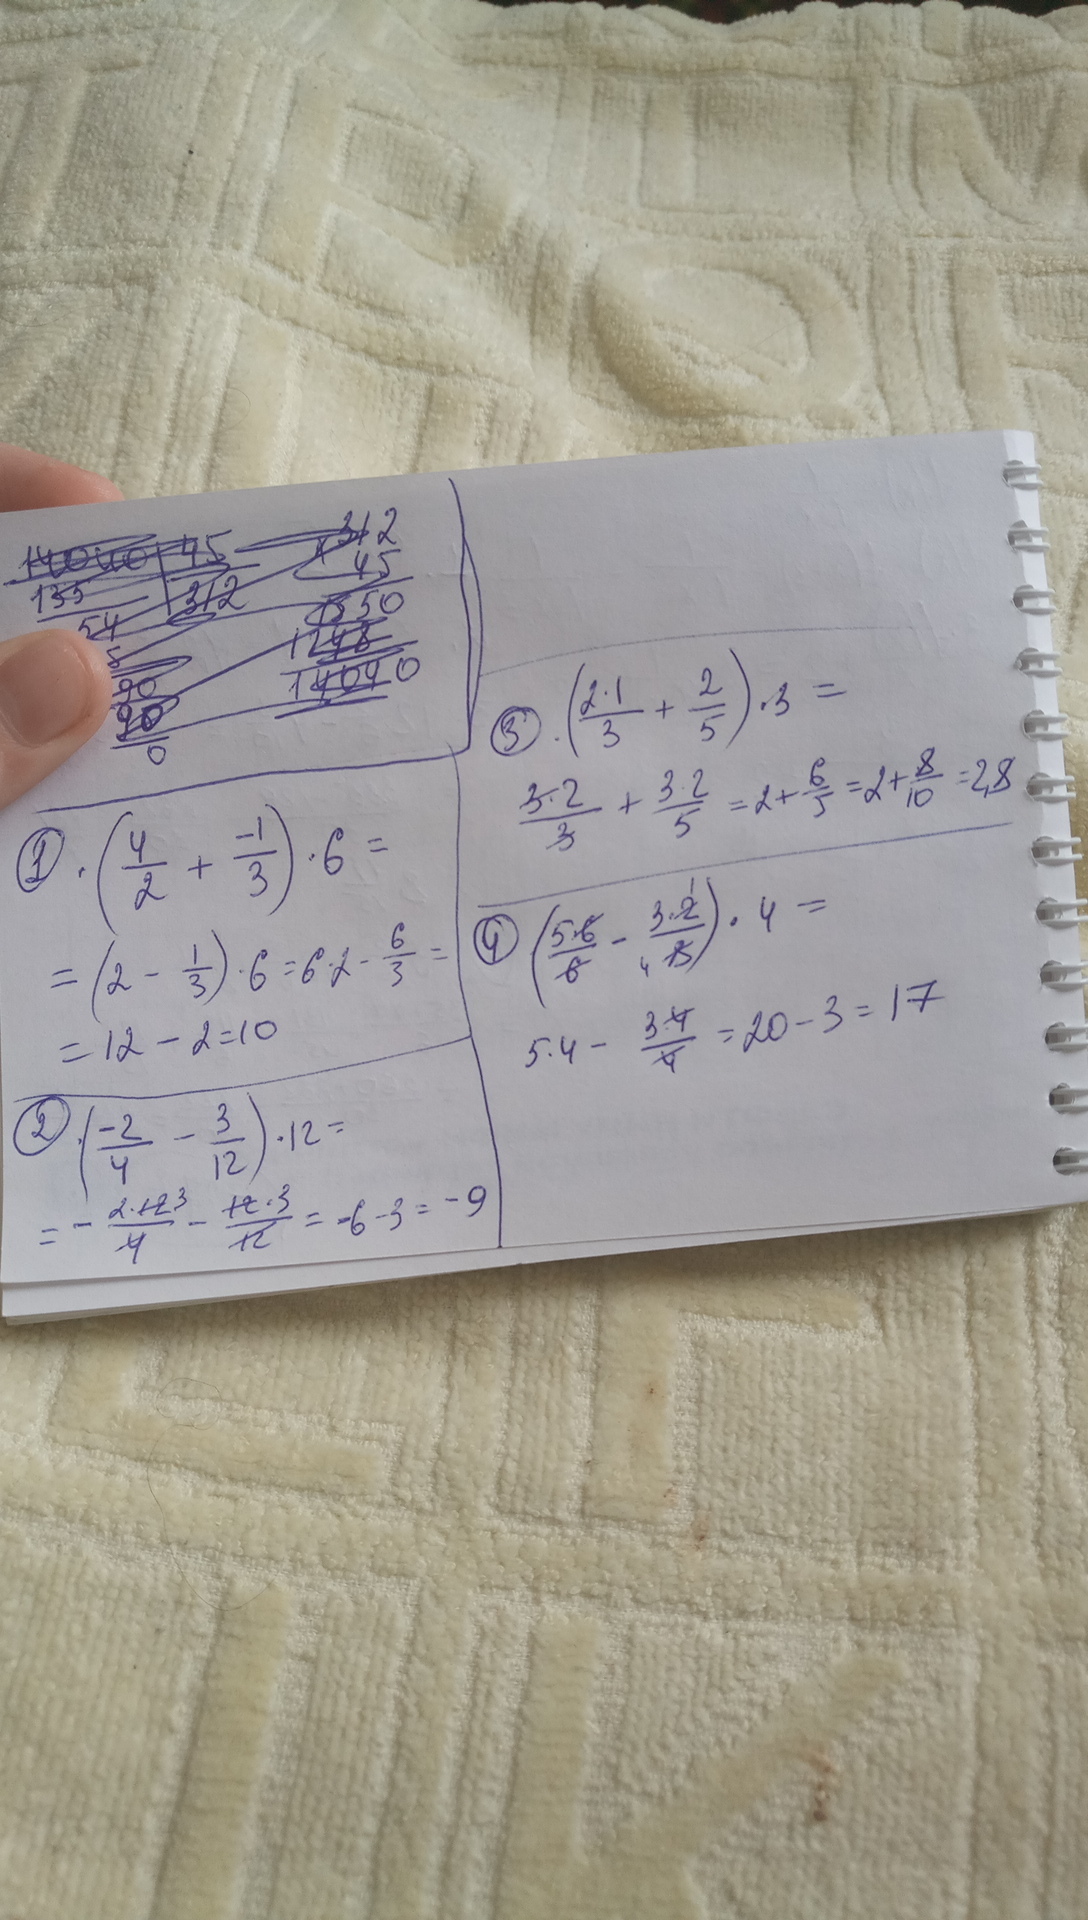 14040 | 45
135 | 312
54
90
90
0
312
45
1248
14040
① . (4/2 + -1/3) · 6 =
= (2 - 1/3) · 6 = 6·2 - 6/3 =
= 12 - 2 = 10
② . (-2/4 - 3/12) · 12 =
= - 2·12 3/4 - 12·3/12 = -6 - 3 = -9
③ . (2·1/3 + 2/5) · 3 =
3·2/3 + 3·2/5 = 2 + 6/5 = 2 + 8/10 = 2,8
④ . (5·6/6 - 3·2 1/4 8) · 4 =
5·4 - 3·4/4 = 20 - 3 = 17